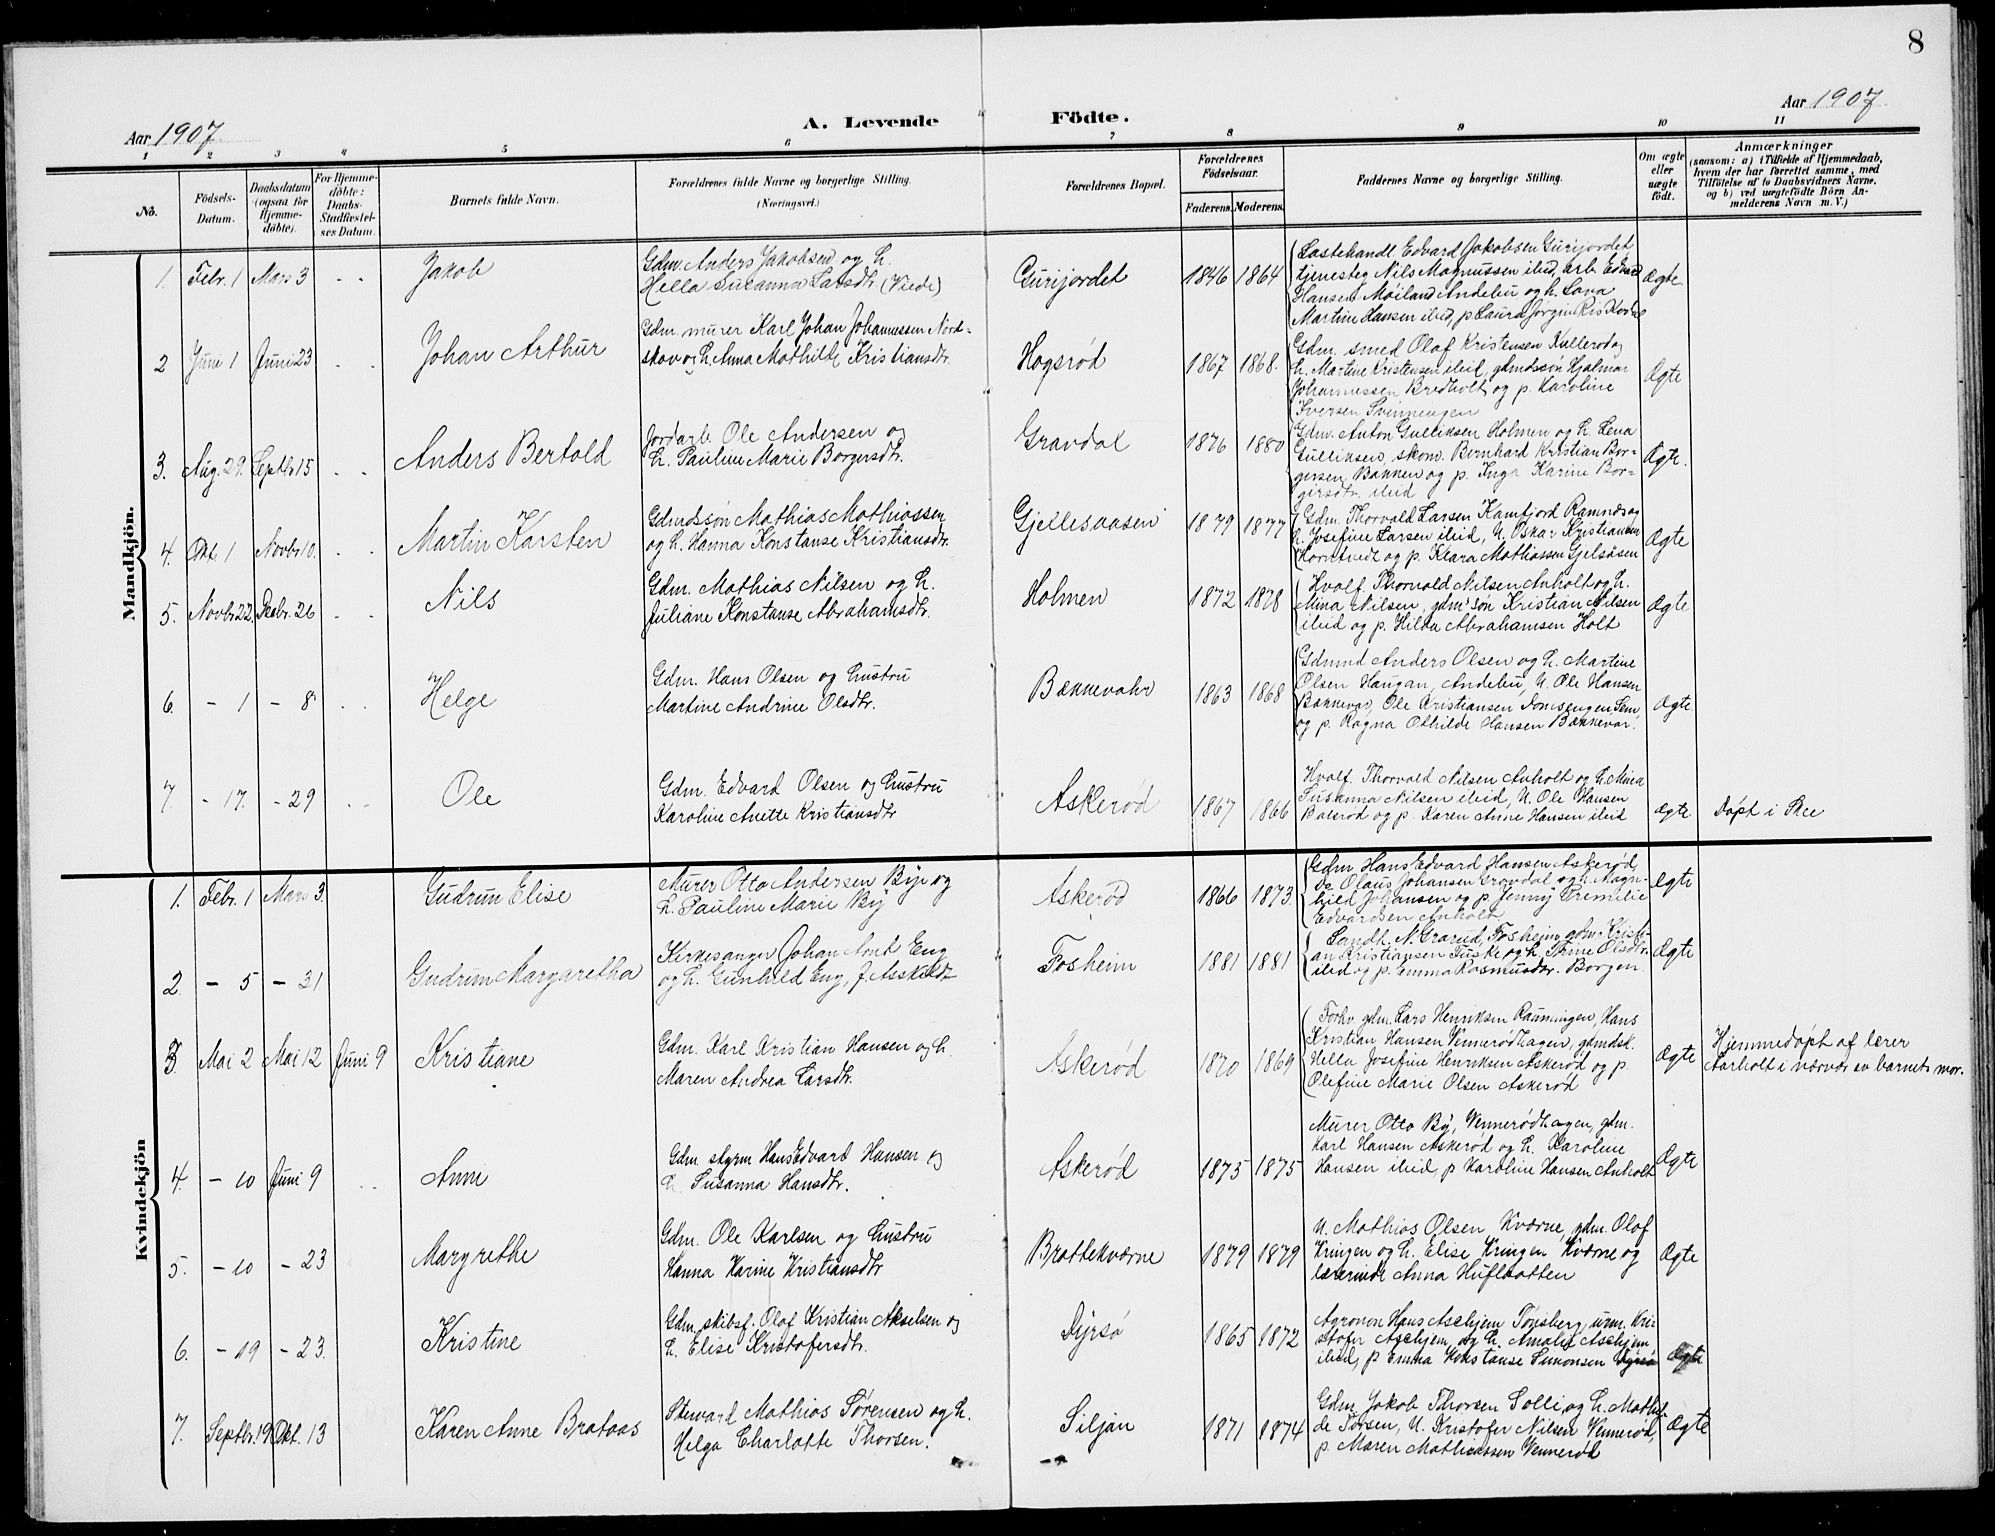 8
Aar 1907
A. Levende
Födte.
Aar 1907.
1 2 3 4 5 6 7 8 9 10 11
No.
Födsels-
Datum.
Daabsdatum
(ogsaa for
Hjemme-
döbte).
For Hjemme-
döbte:
Daabs-
Stadfæstel-
ses Datum.
Barnets fulde Navn.
Forældrenes fulde Navne og borgerlige Stilling.
(Næringsvei.)
Forældrenes Bopæl.
Forældrenes
Födselsaar.
Faderens. Moderens.
Faddernes Navne og borgerlige Stilling.
Om ægte
eller
uægte
födt.
Anmærkninger
(saasom: a) i Tilfælde af Hjemmedaab,
hvem der har forrettet samme, med
Tilföielse af to Daabsvidners Navne,
og b) ved uægtefödte Börn An-
melderens Navn m. V.)
Mandkjön.
1. Febr. 1 Mars 3 - - Jakob
Gdm. Anders Jakobsen og h.
Hella Susanna Larsdtr. (Viede)
Gurijordet 1846 1864
Lastehandl. Edvard Jakobsen Gurijordet
tjenesteg Nils Magnussen ibid, arb. Edvard
Hansen Møiland Andebu og h. Lava
Martine Hansen ibid, p Laura Jørgine Ris Kodal
Ægte
2 Juni 1 Juni 23 - - Johan Arthur
Gdm. murer Karl Johan Johannessen Nord-
skov og h. Anna Mathilde Kristiansdtr.
Hogsrød 1867 1868.
Gdm. smed Olaf Kristensen Kullerød og
h. Martine Kristensen ibid, gdmdssøn Hjalmar
Johannessen Bredholt og p. Karoline
Iversen Svinnengen
Ægte
3. Aug. 29. Septbr 15 - - Anders Bertold
Jordarb. Ole Andersen og
h. Pauline Marie Borgersdtr.
Gravdal 1876 1880
Gdm. Anton Gulliksen Holmen og h. Lena
Gulliksen, skom. Bernhard Kristian Bor-
gersen Bakken og p. Inga Karine Bor-
gersdtr. ibid
Ægte.
4. Okt. 1 Novbr 10. - - Martin Karsten
Gdmdssøn Mathias Mathiassen
og h. Hanna Konstanse Kristiansdtr.
Gjellesaasen 1879 1877
Gdm. Thorvald Larsen Kamfjord Ramnes og
h. Josefine Larsen ibid, U. Oskar Kristiansen
Horntvedt og p. Klara Mathiassen Gjelsåsen
Ægte
5. Novbr 22. Decbr. 26 - - Nils
Gdm. Mathias Nilsen og h.
Juliane Konstanse Abrahamsdtr.
Holmen 1872 1878
Hvalf. Thorvald Nilsen Anholt og h.
Mina Nilsen, gdm's søn Kristian Nilsen
ibid og p. Hilda Abrahamsen Holt
Ægte
6. - 1 - 8 - - Helge
Gdm. Hans Olsen og hustru
Martine Andrine Olsdtr.
Bækkevahr 1863 1868
Gdmnd Anders Olsen og h. Martine
Olsen Haugan, Andebu, U. Ole Hansen
Bækkevar, Ole Kristiansen Domsengen Sem
og p. Ragna Othilde Hansen Bækkevar.
Ægte
7. - 17. - 29 - - Ole
Gdm. Edvard Olsen og hustru
Karoline Anette Kristiansdtr
Askerød 1867 1866
Hvalf. Thorvald Nilsen Anholt og h. Mina
Susanna Nilsen ibid, U. Ole Hansen
Bolsrød og p. Karen Anne Hansen ibid
Ægte Døpt i Skee
Kvindekjön
1. Febr. 1 Mars 3. Gudrun Elise
Murer Otto Andersen By og
h. Pauline Marie By
Askerød 1866 1873.
Gdm Hans Edvard Hansen Askerød,
do Olaus Johansen Gravdal og h. Magn-
hild Johansen og p Jenny Trimilie
Edvardsen Anholt.
Ægte
2. - 5 - 31 Gudrun Margaretha
Kirkesanger Johan Arnt Eng
og h. Gunhild Eng, f. Askildt
Fosheim 1881 1881
Landh. N. Grorud, Fosheim, gdm. Kristi-
an Kristiansen Fuske og h. Trine Olsdtr.
ibid og p. Emma Rasmusdtr. Borgen.
Ægte
3 Mai 2 Mai 12 Juni 9 Kristiane
Gdm. Karl Kristian Hansen og h.
Maren Andrea Larsdtr.
Askerød 1870 1869
Forhv. gdm. Lars Henriksen Rauningen, Hans
Kristian Hansen Vennerødhagen, gdmdsk.
Hella Josefine Henriksen Askerød og p.
Olefine Marie Olsen Askerød
Ægte
Hjemmedøpt af lærer
Aarholt i nærvær av barnets mor.
4. - 10 Juni 9 - - Anni
Gdm. styrm Hans Edvard Hansen og
h. Susanna Hansdtr.
Askerød 1875 1875
Murer Otto By, Vennerødhagen, gdm.
Karl Hansen Askerød og h. Karoline
Hansen ibid, p Karoline Hansen Anholt
Ægte
5. - 10 - 23 Margrethe
Gdm. Ole Karlsen og hustru
Hanna Karine Kristiansdtr
Brattekværne 1879 1879
U. Mathias Olsen Kværne, gdm. Olaf
Kringen og h. Elise Kringen Kværne og
lærerinde Anna Hufløtten
Ægte
6. - 19 - 23. Kristine
Gdm. skibsf. Olaf Kristian Akselsen og
h. Elise Kristofersdtr.
Dyrsø 1865 1872
Agronom Hans Aschjem Tønsberg, urm. Kri-
stofer Aschjem og h. Amalie Aschjem
ibid, p Emma Konstanse Simonsen Dyrsø
Ægte
7. Septbr. 19 Okt. 13 Karen Anne Brataas
Stuvart Mathias Sørensen og h.
Helga Charlotte Thorsen.
Siljan 1871 1874
Gdm. Jakob Thorsen Solli og h. Mathil-
de Torsen, U. Kristofer Nilsen Vennerød,
p. Maren Mathiassen Vennerød
Ægte